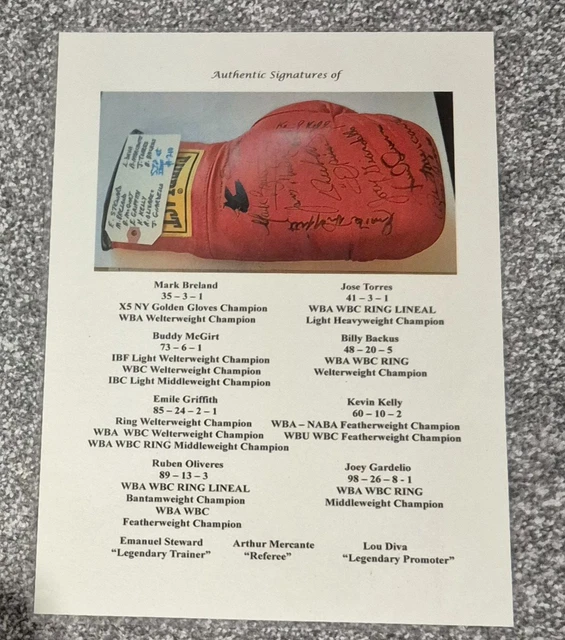 Authentic Signatures of
Mark Breland
35 – 3 – 1
X5 NY Golden Gloves Champion
WBA Welterweight Champion
Jose Torres
41 – 3 – 1
WBA WBC RING LINEAL
Light Heavyweight Champion
Buddy McGirt
73 – 6 – 1
IBF Light Welterweight Champion
WBC Welterweight Champion
IBC Light Middleweight Champion
Billy Backus
48 – 20 – 5
WBA WBC RING
Welterweight Champion
Emile Griffith
85 – 24 – 2 – 1
Ring Welterweight Champion
WBA WBC Welterweight Champion
WBA WBC RING Middleweight Champion
Kevin Kelly
60 – 10 – 2
WBA – NABA Featherweight Champion
WBU WBC Featherweight Champion
Ruben Oliveres
89 – 13 – 3
WBA WBC RING LINEAL
Bantamweight Champion
WBA WBC
Featherweight Champion
Joey Gardelio
98 – 26 – 8 - 1
WBA WBC RING
Middleweight Champion
Emanuel Steward
“Legendary Trainer”
Arthur Mercante
“Referee”
Lou Diva
“Legendary Promoter”